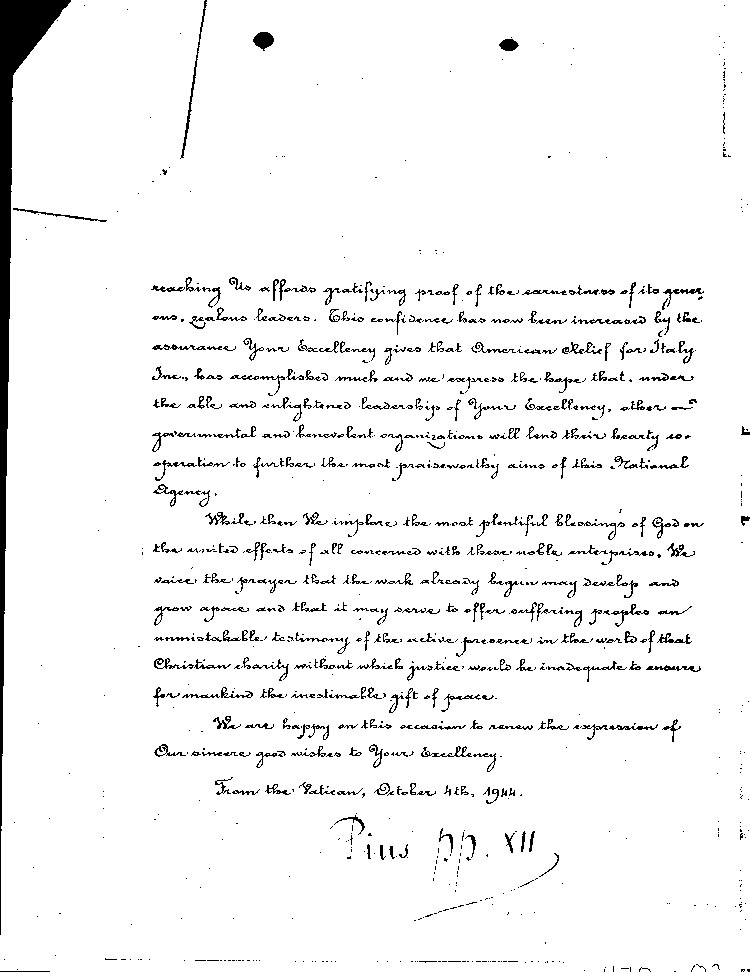 reaching Us affords gratifying proof of the earnestness of its gener-
ous, zealous leaders. This confidence has now been increased by the
assurance Your Excellency gives that American Relief for Italy
Inc., has accomplished much and we express the hope that, under
the able and enlightened leadership of Your Excellency, other
governmental and benevolent organizations will lend their hearty co-
operation to further the most praiseworthy aims of this National
Agency.
While then We implore the most plentiful blessings of God on
the united efforts of all concerned with these noble enterprises, We
voice the prayer that the work already begun may develop and
grow apace and that it may serve to offer suffering peoples an
unmistakable testimony of the active presence in the world of that
Christian charity without which justice would be inadequate to ensure
for mankind the inestimable gift of peace.
We are happy on this occasion to renew the expression of
Our sincere good wishes to Your Excellency.
From the Vatican, October 4th, 1944.
Pius pp. XII